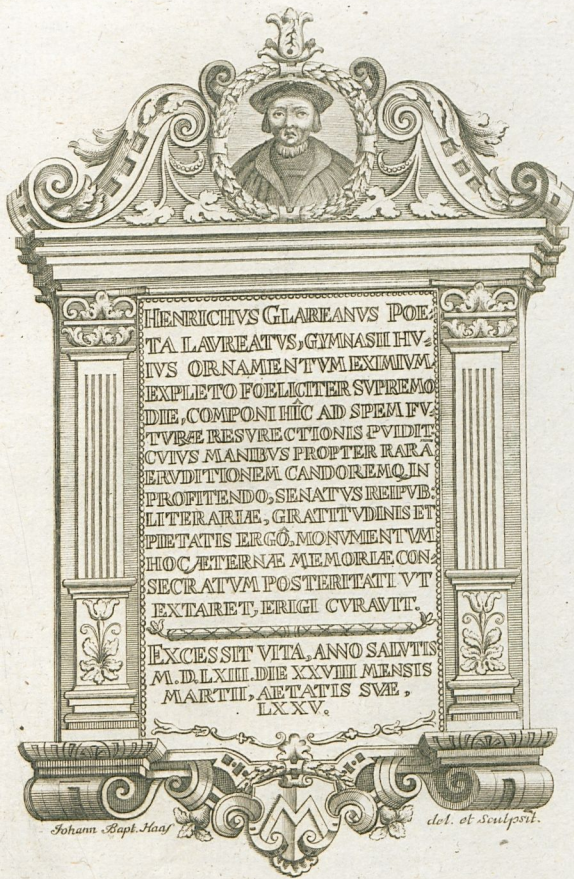 HENRICHVS GLAREANVS POE-
TA LAVREATVS, GYMNASII HV-
IVS ORNAMENTVM EXIMIVM
EXPLETO FOELICITER SVPREMO
DIE, COMPONI HÎC AD SPEM FV-
TVRÆ RESVRECTIONIS PVIDIT.
CVIVS MANIBVS PROPTER RARĀ
ERVDITIONEM CANDOREMQ, IN
PROFITENDO, SENATVS REIPVB:
LITERARIÆ, GRATITVDINIS ET
PIETATIS ERGÔ, MONVMENTVM
HOC ÆTERNÆ MEMORIÆ CON-
SECRATVM POSTERITATI VT
EXTARET, ERIGI CVRAVIT.
EXCESSIT VITA, ANNO SALVTIS
M. D. LXIII. DIE XXVIII MENSIS
MARTII, AETATIS SVÆ,
LXXV.
Johann Bapt. Haas del. et Sculpsit.